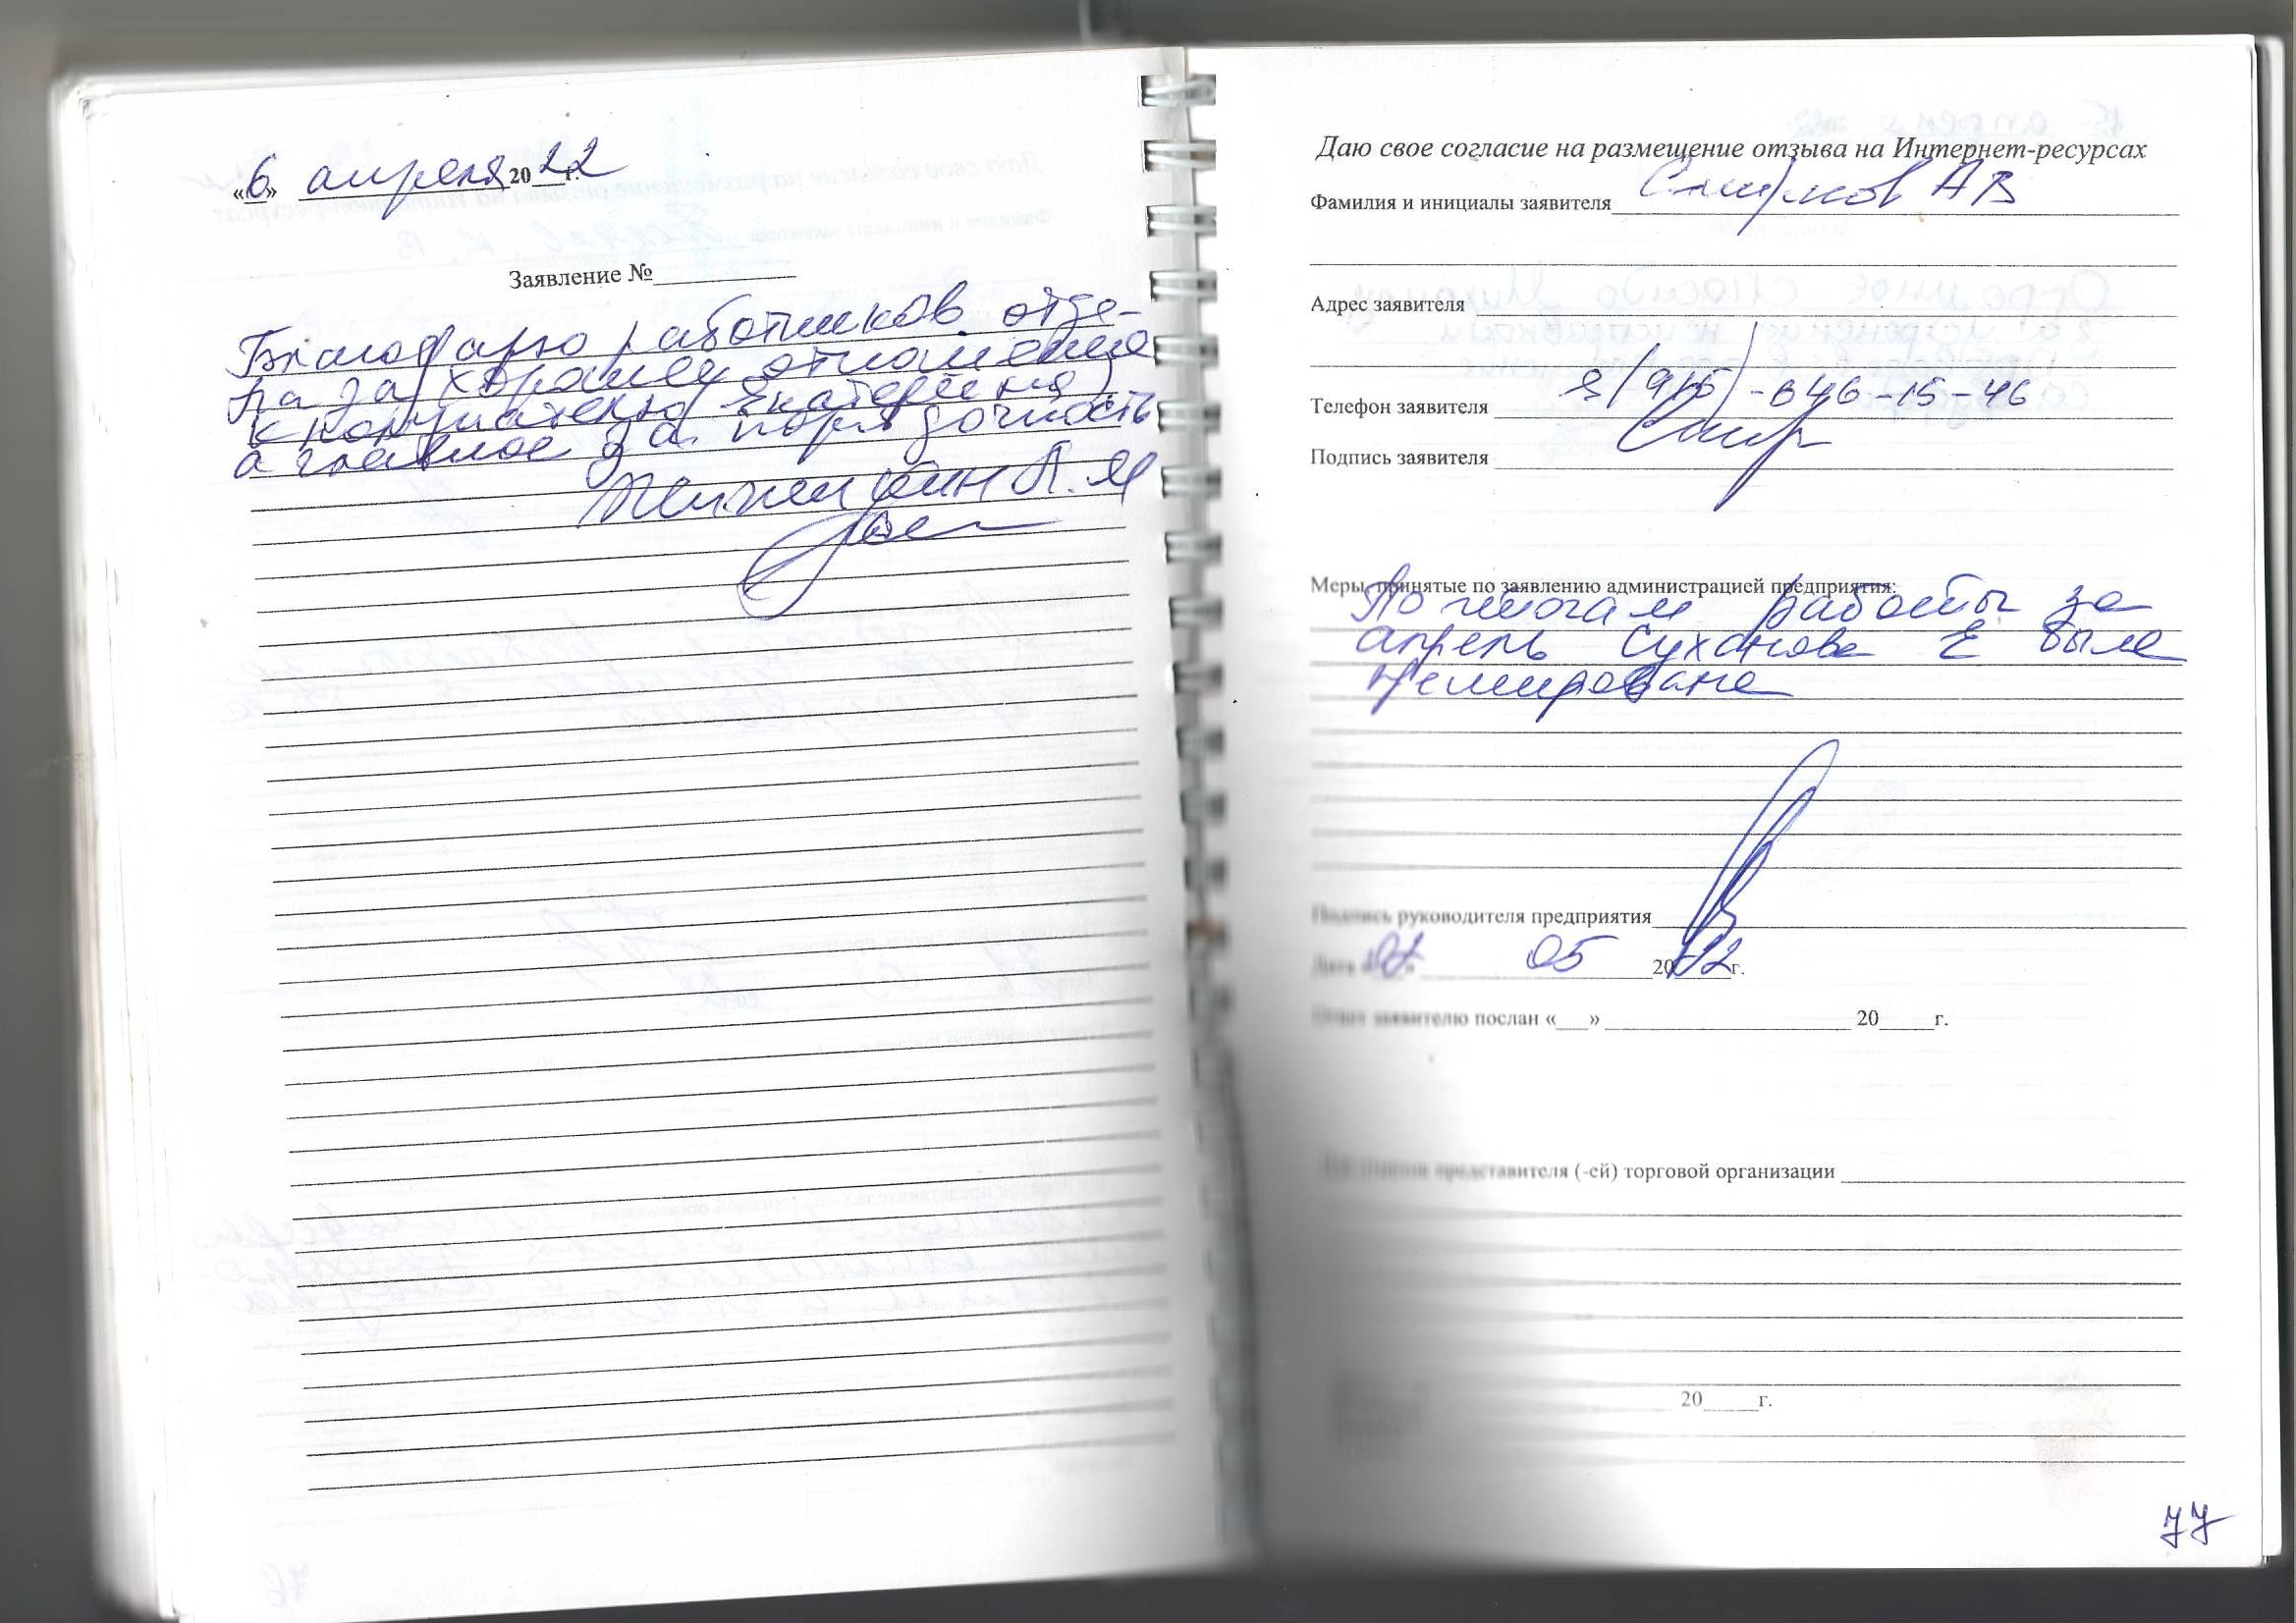 «6» апреля 2022 г.
Заявление №
Благодарю работников отде-
ла за хорошее отношение
к покупателю (Екатерина)
а главное за порядочность
А.Я
Даю свое согласие на размещение отзыва на Интернет-ресурсах
Фамилия и инициалы заявителя Смирнов АВ
Адрес заявителя
Телефон заявителя 8(915)-646-15-46
Подпись заявителя Смир
Меры, принятые по заявлению администрацией предприятия:
По итогам работы за
апрель Суханова Е была
премирована
Подпись руководителя предприятия
Дата 05 2022г.
Ответ заявителю послан «___» 20 г.
представителя (-ей) торговой организации
20 г.
77